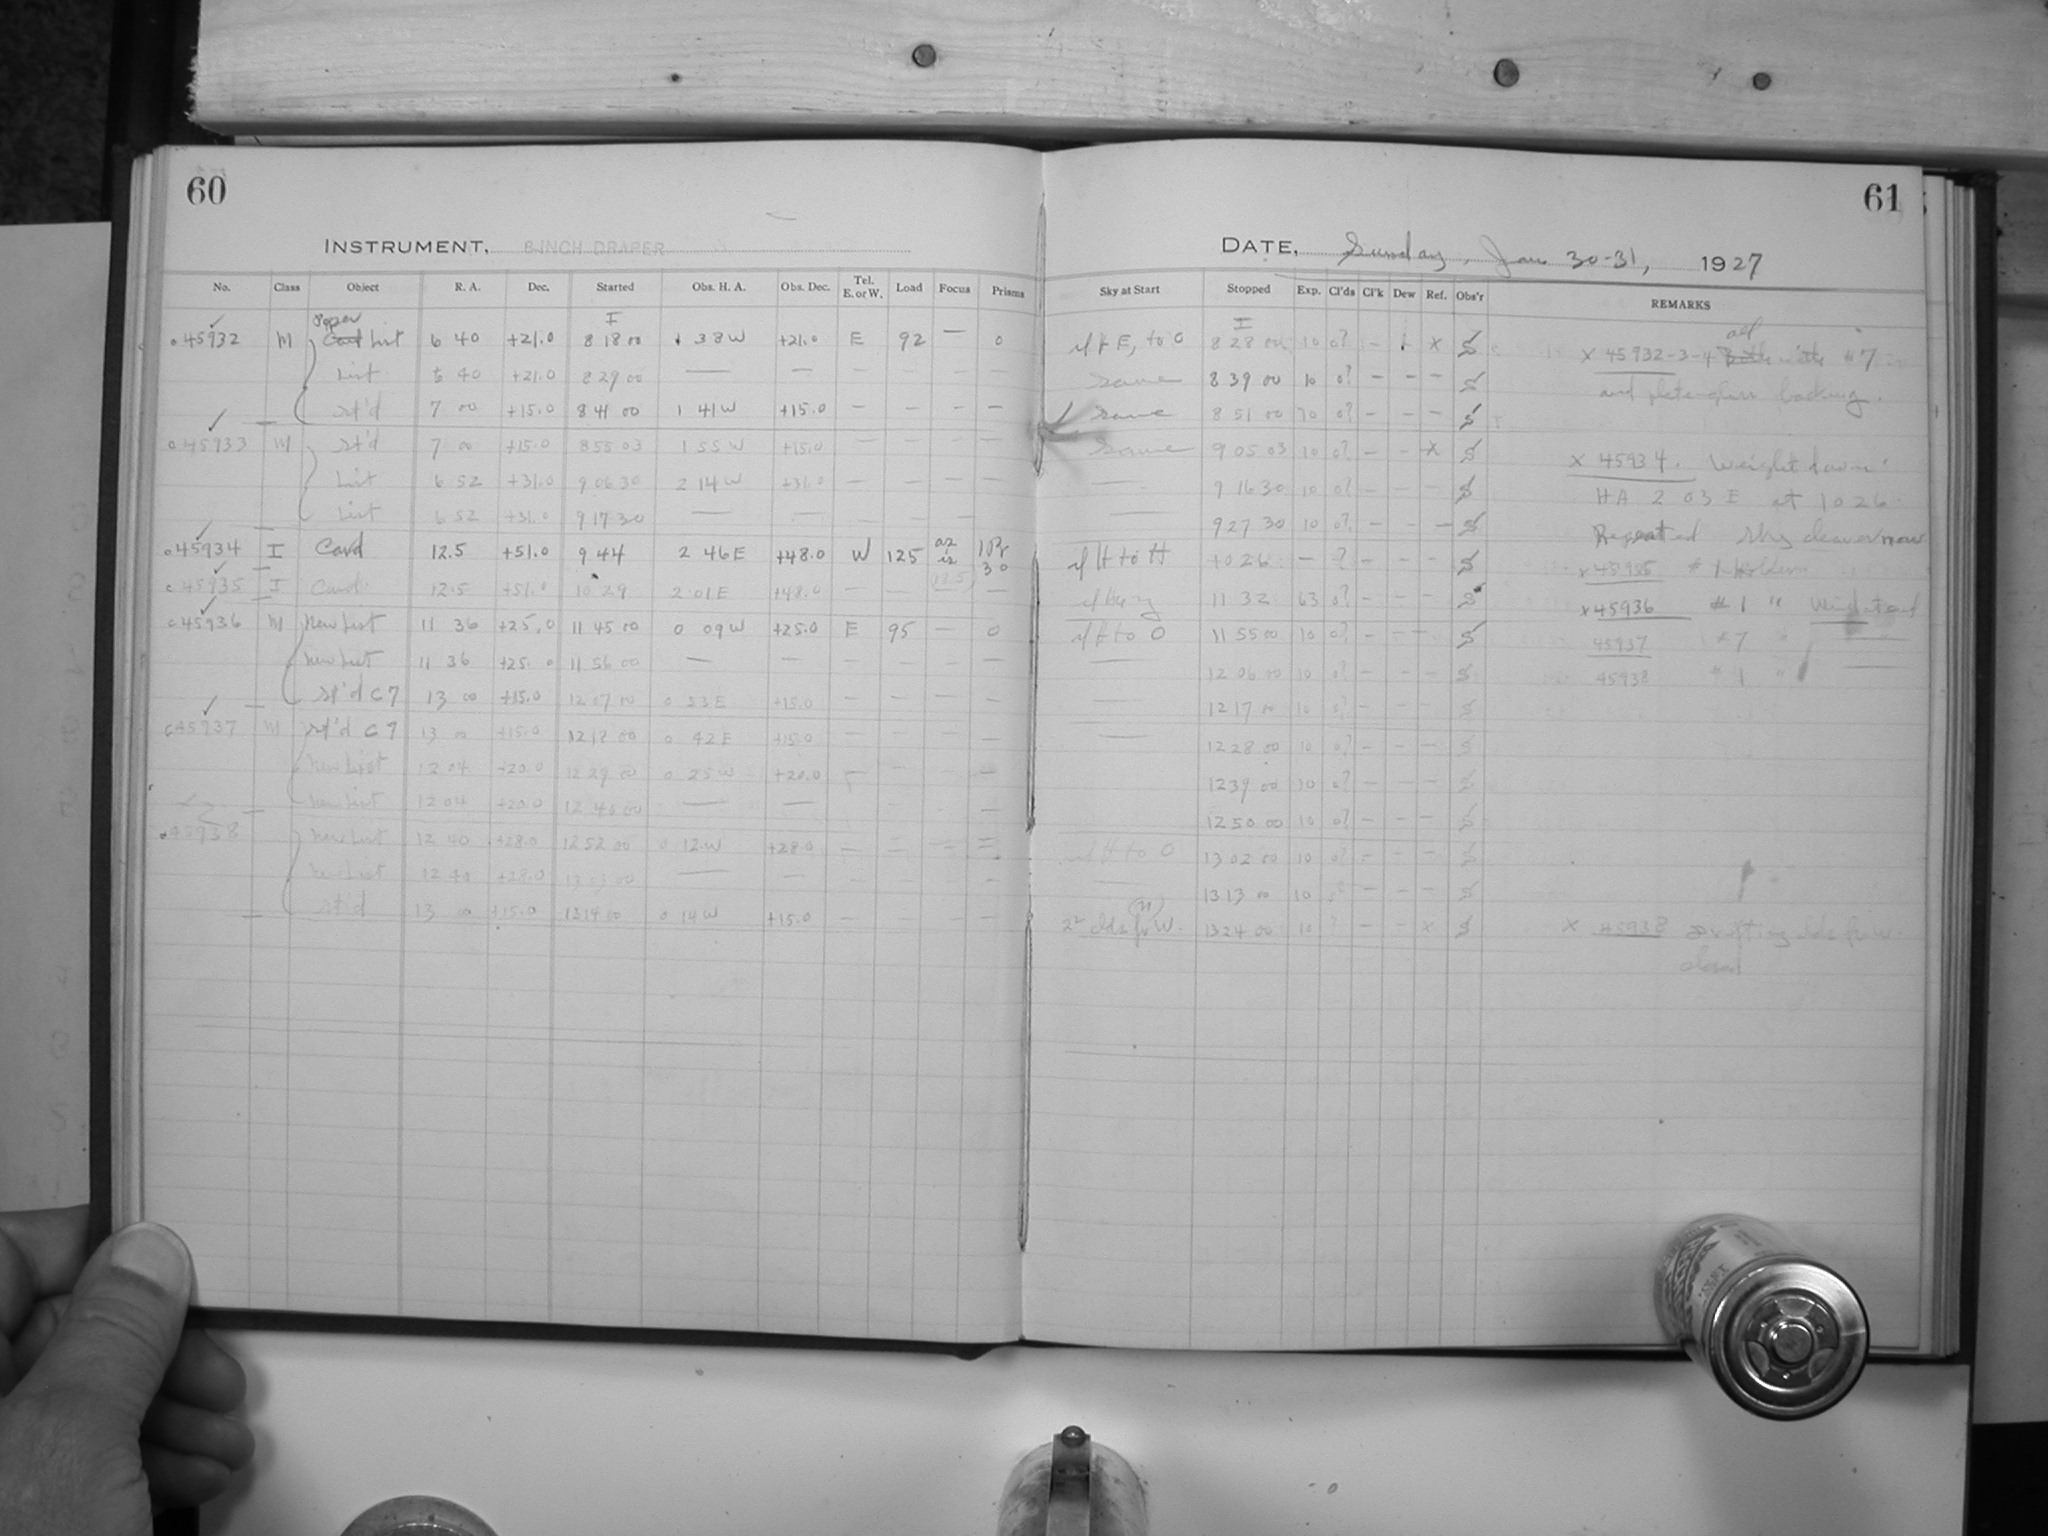 60
INSTRUMENT, 8 INCH DRAPER
No. Class Object R. A. Dec. Started Obs. H. A. Obs. Dec. Tel. E. or W. Load Focus Prisms
45932 M List 6 40 +21.0 8 18 00 1 38 W +21.0 E 92 — 0
List 6 40 +21.0 8 29 00 — — — — — —
st'd 7 00 +15.0 8 41 00 1 41 W +15.0 — — — —
45933 M st'd 7 00 +15.0 8 55 03 1 55 W +15.0 — — — —
List 6 52 +31.0 9 06 30 2 14 W +31.0 — — — —
List 6 52 +31.0 9 17 30 — — — — — —
45934 I Card 12.5 +51.0 9 44 2 46 E +48.0 W 125
45935 I Card 12.5 +51.0 10 29 2 01 E +48.0 — — —
45936 M New List 11 36 +25.0 11 45 00 0 09 W +25.0 E 95 — 0
New List 11 36 +25.0 11 56 00 — — — — — —
st'd C 7 13 00 +15.0 12 07 00 0 53 E +15.0 — — — —
45937 M st'd C 7 13 00 +15.0 12 18 00 0 42 E +15.0 — — — —
New List 12 04 +20.0 12 29 00 0 25 W +20.0 — — — —
New List 12 04 +20.0 12 40 00 — — — — — —
45938 New List 12 40 +28.0 12 52 00 0 12 W +28.0 — — — —
New List 12 40 +28.0 13 03 00 — — — — — —
st'd 13 00 +15.0 13 14 00 0 14 W +15.0 — — — —
61
DATE, Sunday, Jan 30-31, 1927
Sky at Start Stopped Exp. Cl'ds Cl'k Dew Ref. Obs'r REMARKS
8 28 00 10 0? — x S
same 8 39 00 10 0? — — — S
same 8 51 00 10 0? — — — S
same 9 05 03 10 0? — — x S
— 9 16 30 10 0? — — — S
— 9 27 30 10 0? — — — S
10 26 — ? — — — S
11 32 63 0? — — — S
11 55 00 10 0? — — — S
— 12 06 00 10 0? — — — S
— 12 17 00 10 0? — — — S
— 12 28 00 10 0? — — — S
12 39 00 10 0? — — — S
12 50 00 10 0? — — — S
13 02 00 10 0? — — — S
— 13 13 00 10 0? — — — S
clds fr W. 13 24 00 10 ? — — x S
x 45932-3-4 all with #7
and plateglass backing.
x 45934. Weight down
HA 2 03 E at 10 26.
Repeated sky clearer now
x 45935 #1 Holder
x 45936 #1 "
45937 #7 "
45938 #1 "
x 45938 drifting clds fr W.
closed